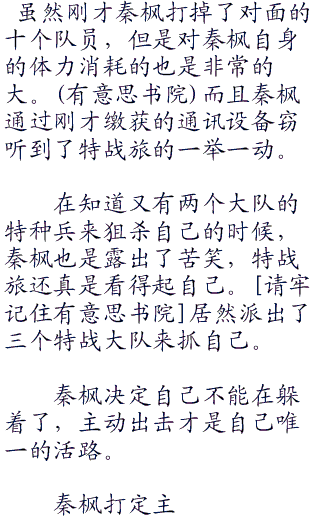 虽然刚才秦枫打掉了对面的
十个队员，但是对秦枫自身
的体力消耗的也是非常的
大。(有意思书院)而且秦枫
通过刚才缴获的通讯设备窃
听到了特战旅的一举一动。
在知道又有两个大队的
特种兵来狙杀自己的时候，
秦枫也是露出了苦笑，特战
旅还真是看得起自己。[请牢
记住有意思书院]居然派出了
三个特战大队来抓自己。
秦枫决定自己不能在躲
着了，主动出击才是自己唯
一的活路。
秦枫打定主